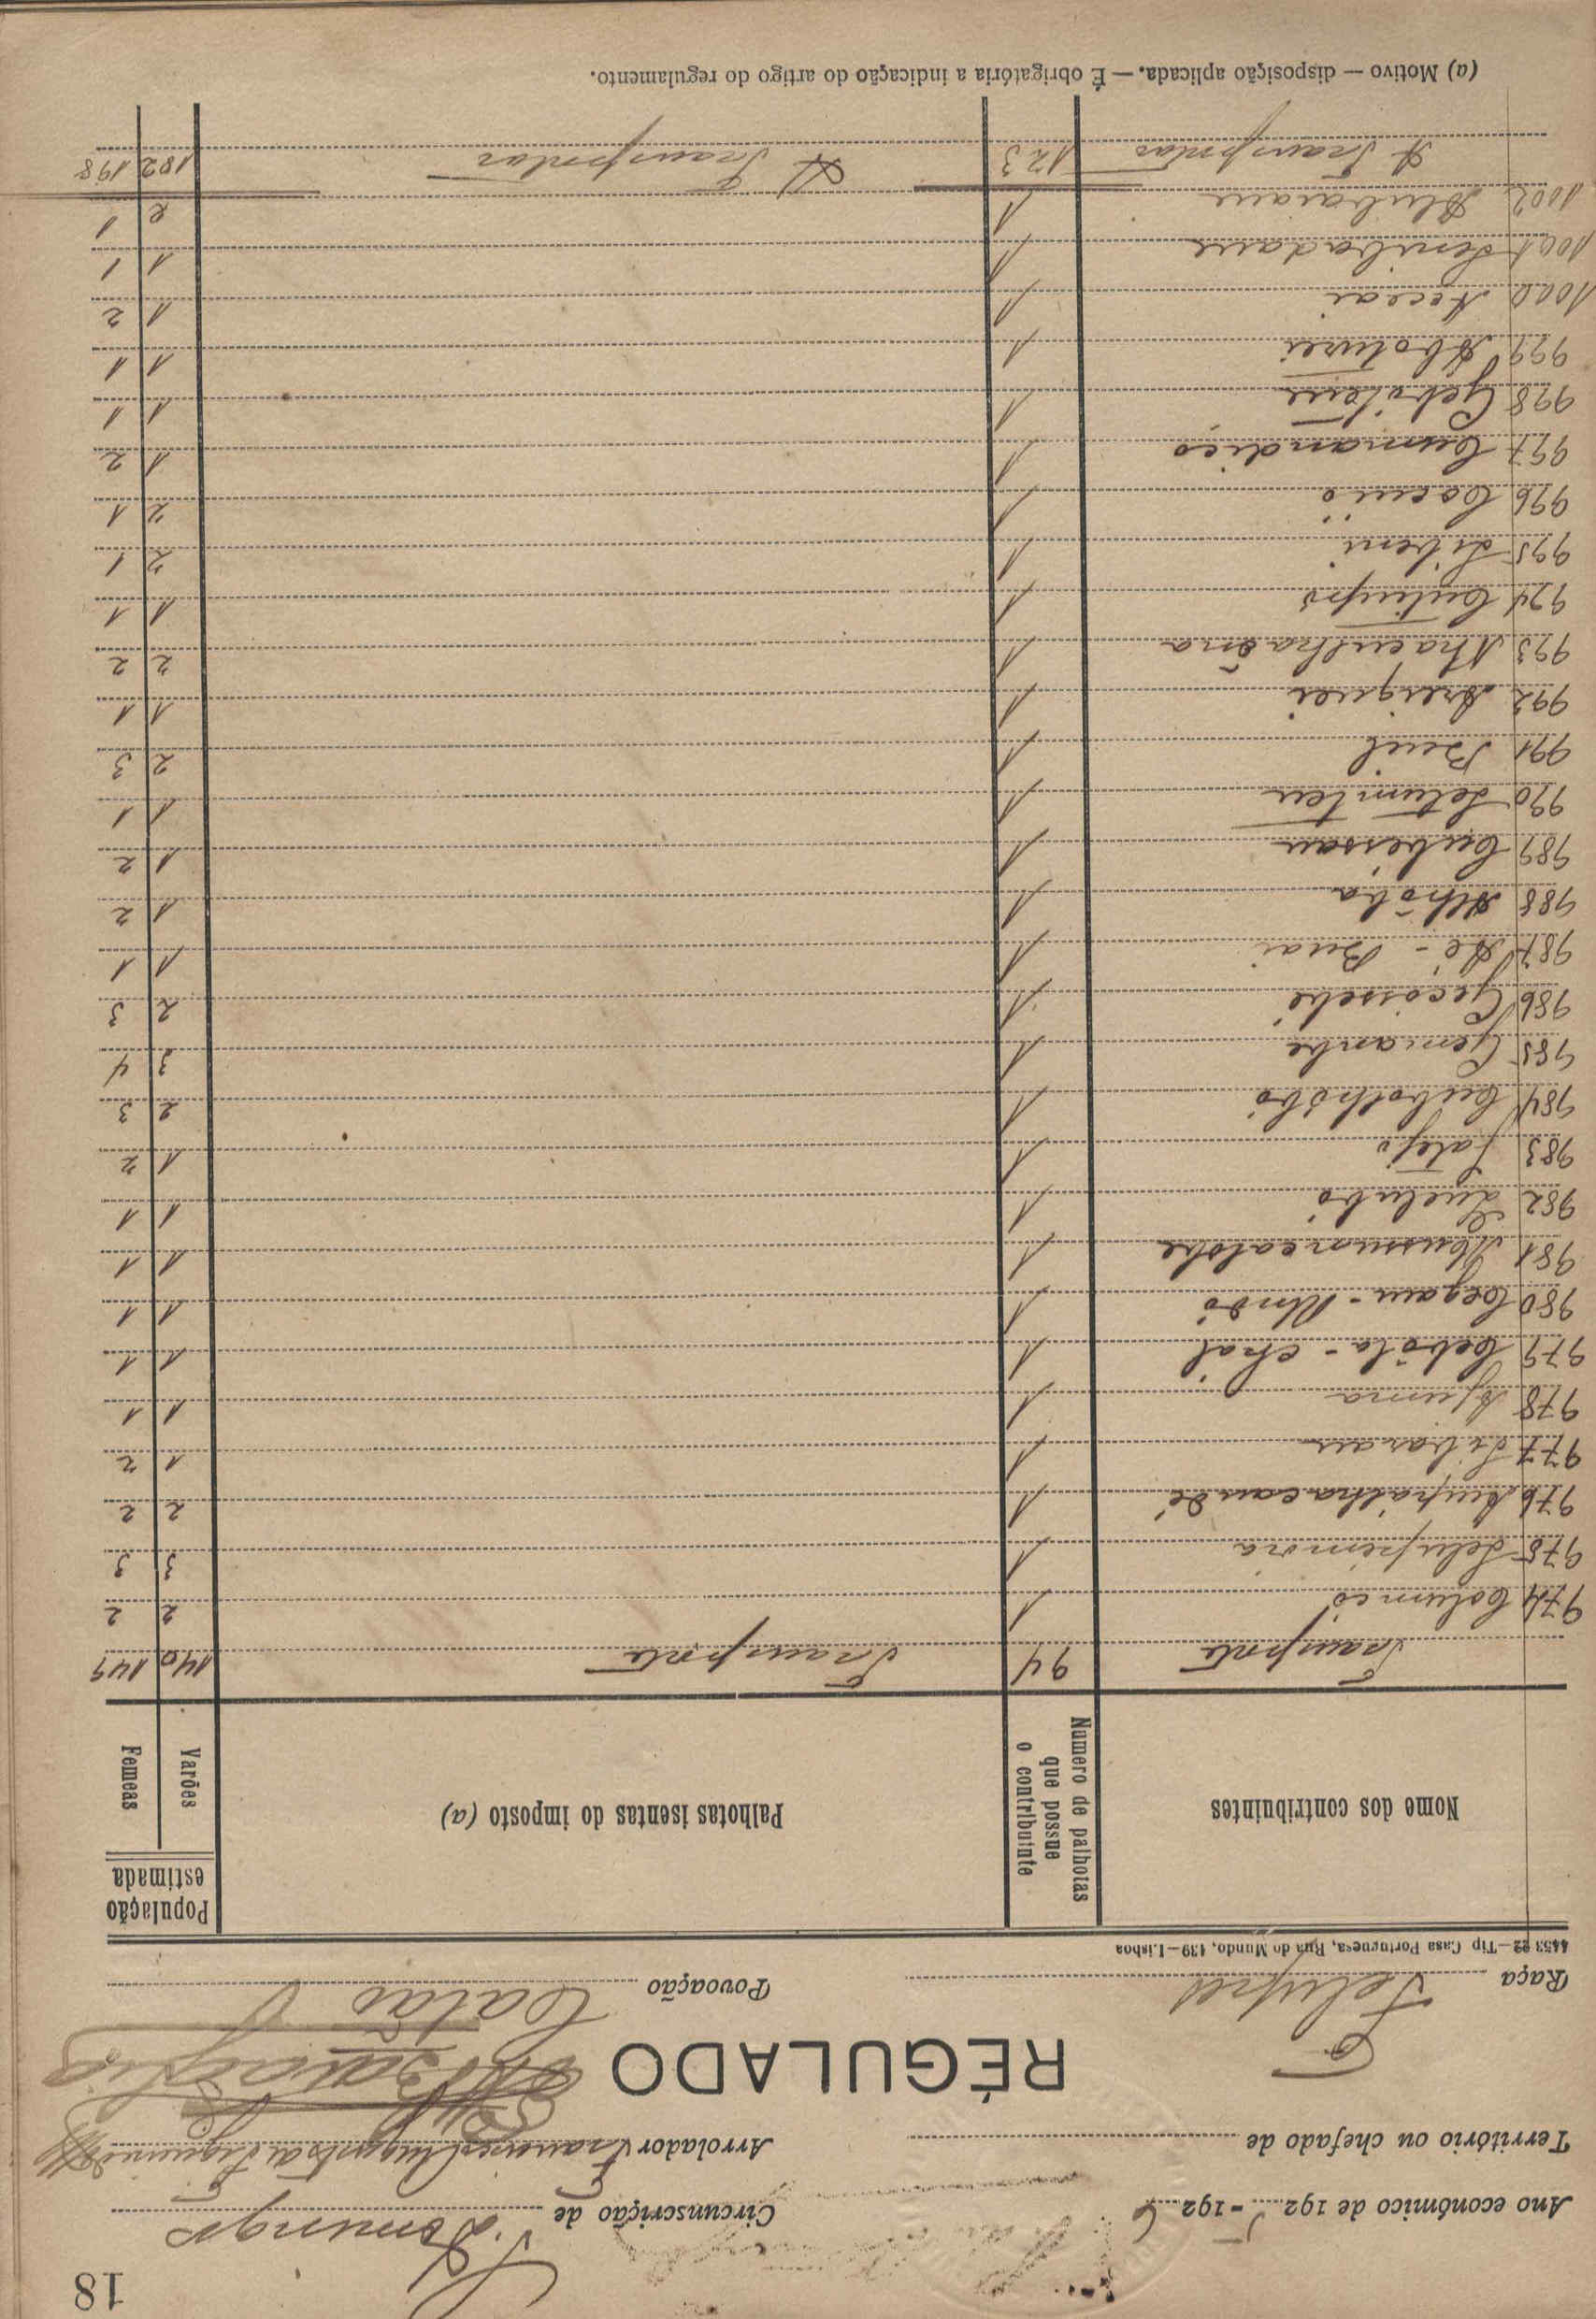 18
Ano económico de 192 5 - 192 6
Circunscrição de S. Domingos
Território ou chefado de
Arrolador Francisco Augusto
RÉGULADO
Raça Felupes
Povoação Catão
4453 22—Tip Casa Portuguesa, Rua do Mundo, 139—Lisboa
Nome dos contribuintes
Numero de palhotas que possue o contribuinte
Palhotas isentas do imposto (a)
População estimada
Varões
Femeas
Transporte 94 Transporte 140 149
974 Columeó 1 2 2
975 Selupémóra 1 3 3
976 1 2 2
977 Libarau 1 1 2
978 Ajuma 1 1 1
979 Cebóla - chal 1 1 1
980 Cegau - Undó 1 1 1
981 1 1 1
982 Quelubó 1 1 1
983 Jatejó 1 1 2
984 Cubolhóbó 1 2 3
985 Gemambe 1 3 4
986 Gecóssebé 1 2 3
987 Sé - Buai 1 1 1
988 Alhóba 1 1 2
989 Cubéssau 1 1 2
990 Setumteu 1 1 1
991 Beuil 1 2 3
992 Areiguei 1 1 1
993 1 2 2
994 Cutimpó 1 1 1
995 Libeni 1 2 1
996 Cocuió 1 2 1
997 Cumandiço 1 1 2
998 Gebiteu 1 1 1
999 Aboturei 1 1 1
1000 Aceai 1 1 2
1001 Senibadau 1 1 1
1002 Alubaiau 1 2 1
A Transportar 123 A Transportar 182 198
(a) Motivo — disposição aplicada. — É obrigatória a indicação do artigo do regulamento.